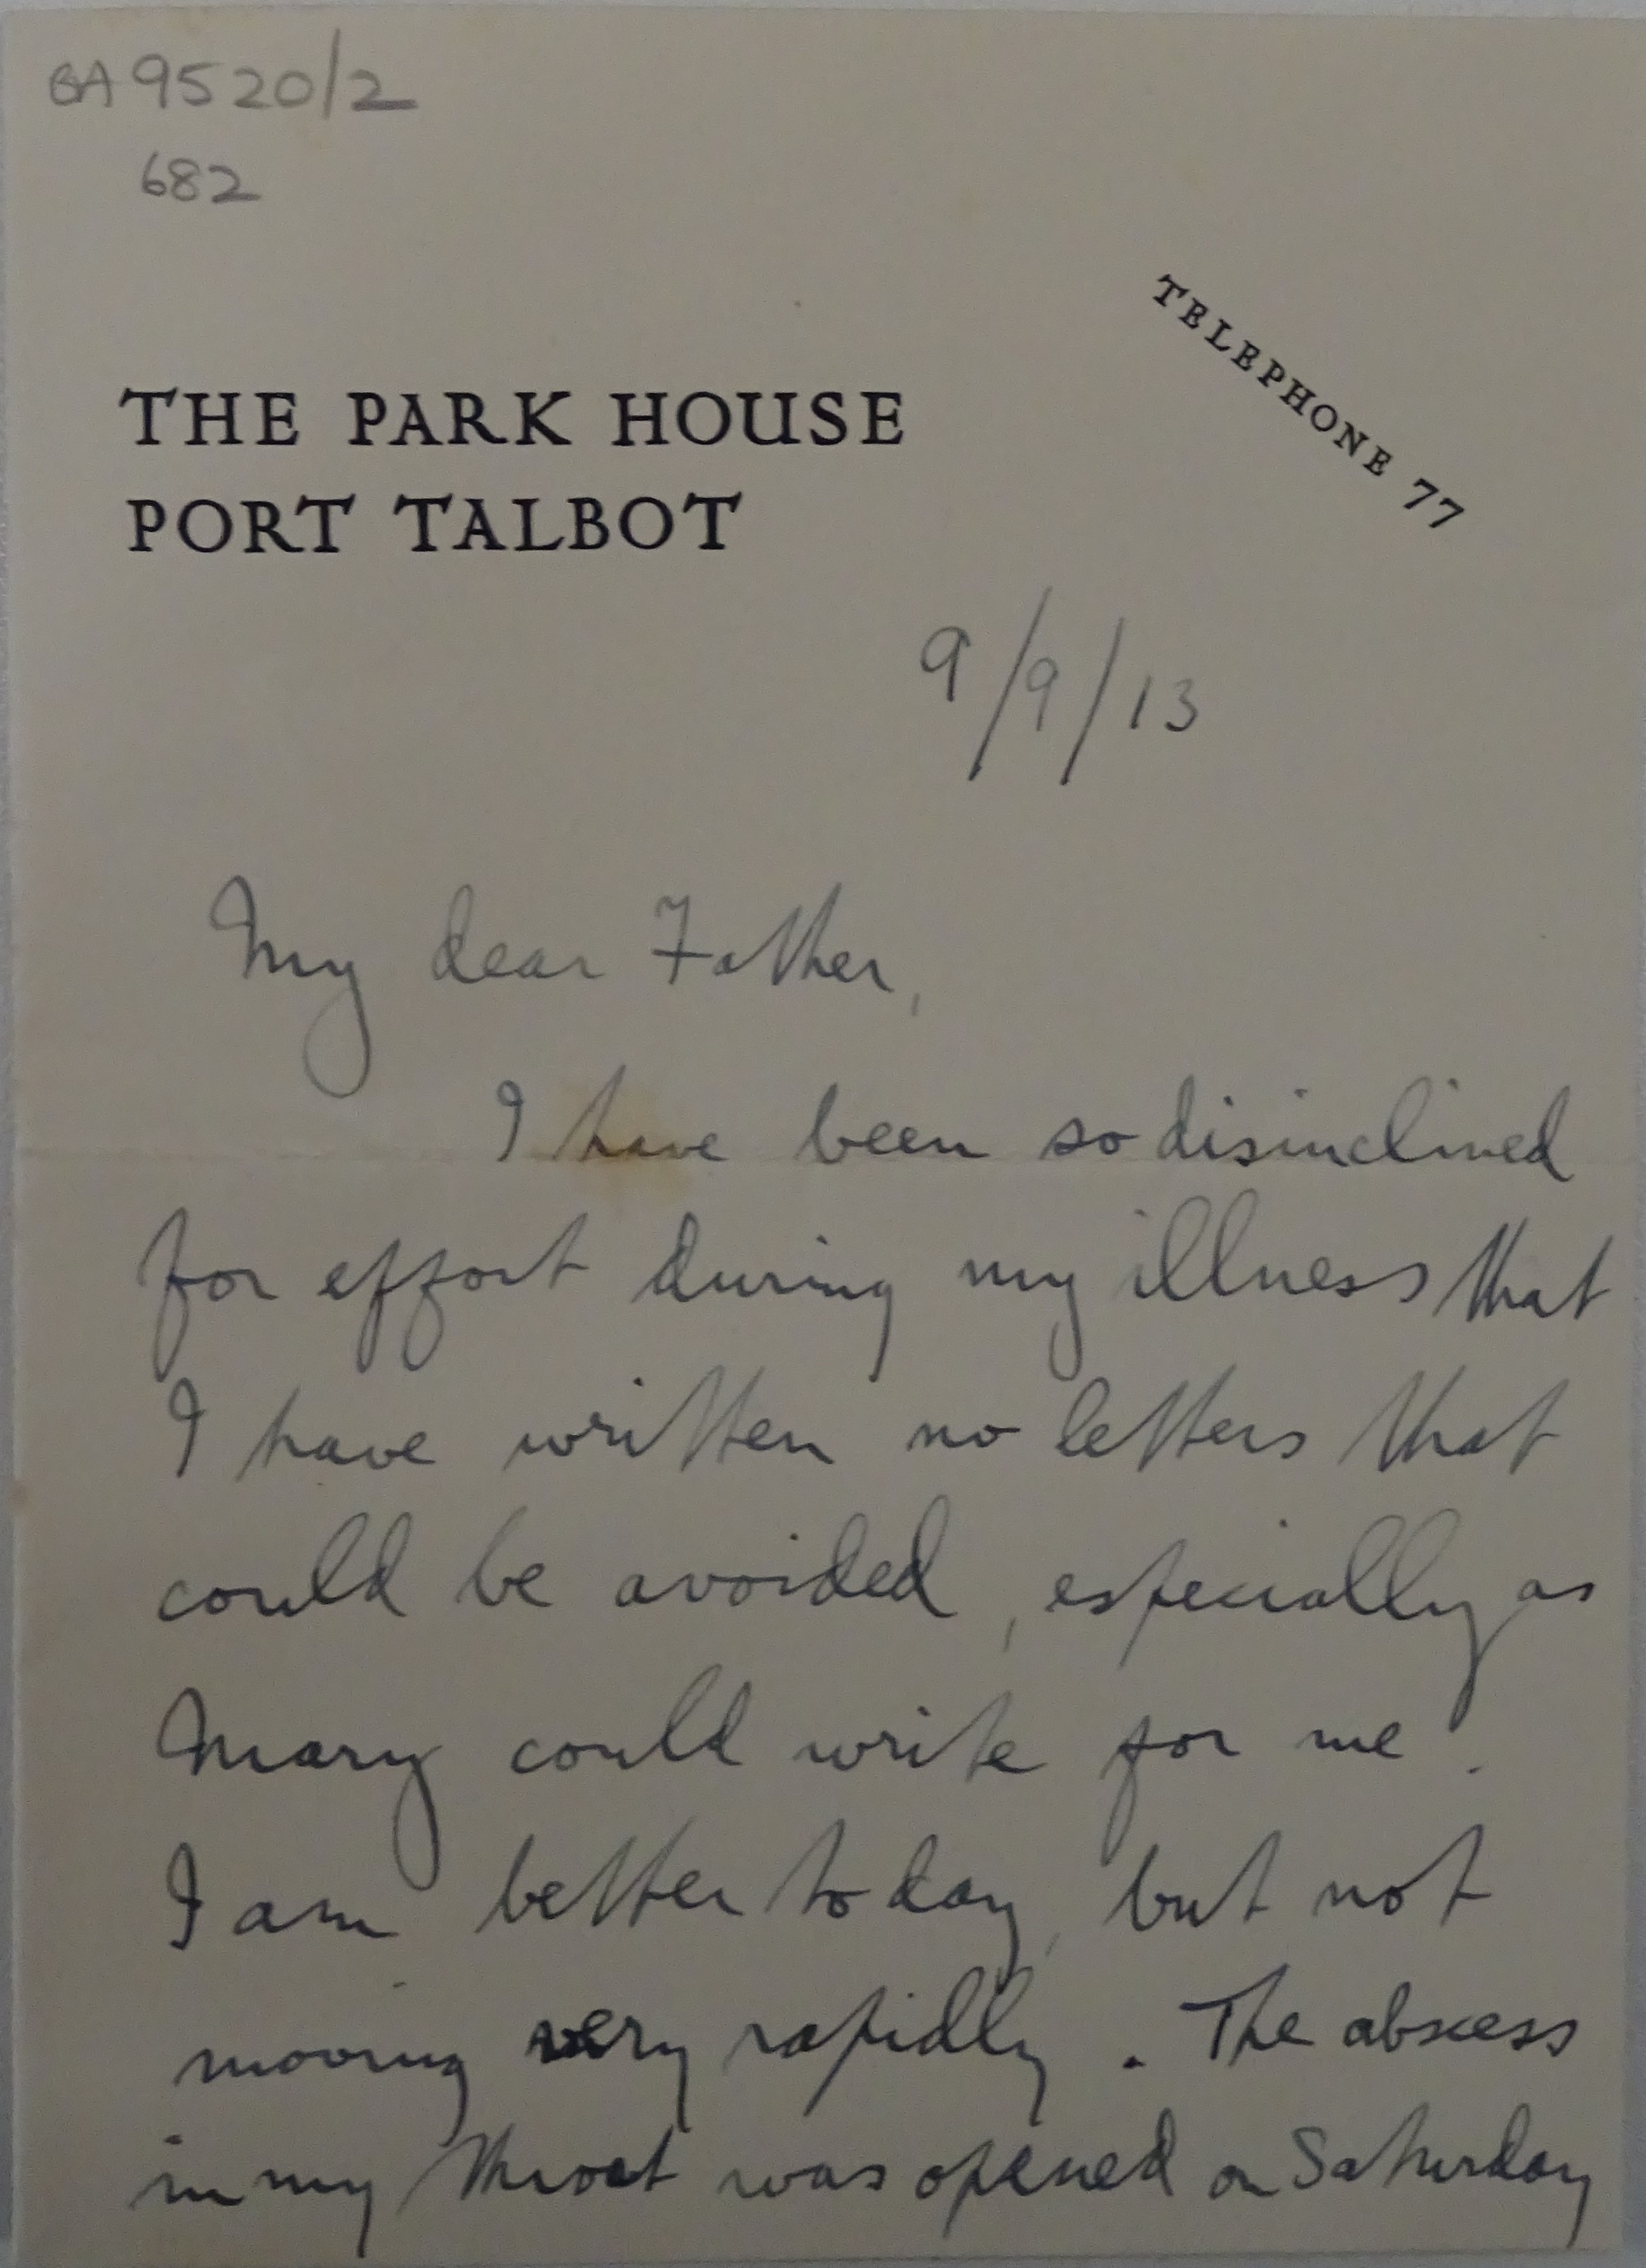 GA 9520/2
682
TELEPHONE 77
THE PARK HOUSE
PORT TALBOT
9/9/13
My dear Father,
I have been so disinclined
for effort during my illness that
I have written no letters that
could be avoided, especially as
Mary could write for me.
I am better today, but not
moving very rapidly. The abscess
in my throat was opened on Saturday